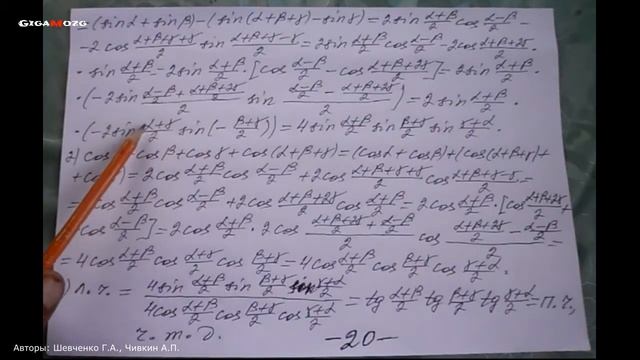 GIGAMOZG
= (sinα + sinβ) - (sin(α+β+γ) - sinγ) = 2sin (α+β)/2 cos (α-β)/2 -
- 2 cos (α+β+γ+γ)/2 sin (α+β+γ-γ)/2 = 2sin (α+β)/2 cos (α-β)/2 - 2cos (α+β+2γ)/2 ·
· sin (α+β)/2 = 2sin (α+β)/2 · [cos (α-β)/2 - cos (α+β+2γ)/2] = 2sin (α+β)/2 ·
· (-2sin ((α-β)/2 + (α+β+2γ)/2)/2 sin ((α-β)/2 - (α+β+2γ)/2)/2) = 2 sin (α+β)/2 ·
· (-2sin (α+γ)/2 sin(-(β+γ)/2)) = 4sin (α+β)/2 sin (β+γ)/2 sin (γ+α)/2.
2) cos + cosβ + cosγ + cos(α+β+γ) = (cosα + cosβ) + (cos(α+β+γ) +
+ cos ) = 2cos (α+β)/2 cos (α-β)/2 + 2cos (α+β+γ+γ)/2 cos (α+β+γ-γ)/2 =
= cos (α+β)/2 cos (α-β)/2 + 2cos (α+β+2γ)/2 cos (α+β)/2 = 2cos (α+β)/2 · [cos (α+β+2γ)/2 +
cos (α-β)/2] = 2cos (α+β)/2 · 2cos ((α+β+2γ)/2 + (α-β)/2)/2 cos ((α+β+2γ)/2 - (α-β)/2)/2 =
= 4cos (α+β)/2 cos (α+γ)/2 cos (β+γ)/2 = 4cos (α+β)/2 cos (β+γ)/2 cos (γ+α)/2.
) Л.ч. = (4sin (α+β)/2 sin (β+γ)/2 sin (γ+α)/2)/(4cos (α+β)/2 cos (β+γ)/2 cos (γ+α)/2) = tg (α+β)/2 tg (β+γ)/2 tg (γ+α)/2 = П.ч.,
ч.т.д. -20-
Авторы: Шевченко Г.А., Чивкин А.П.